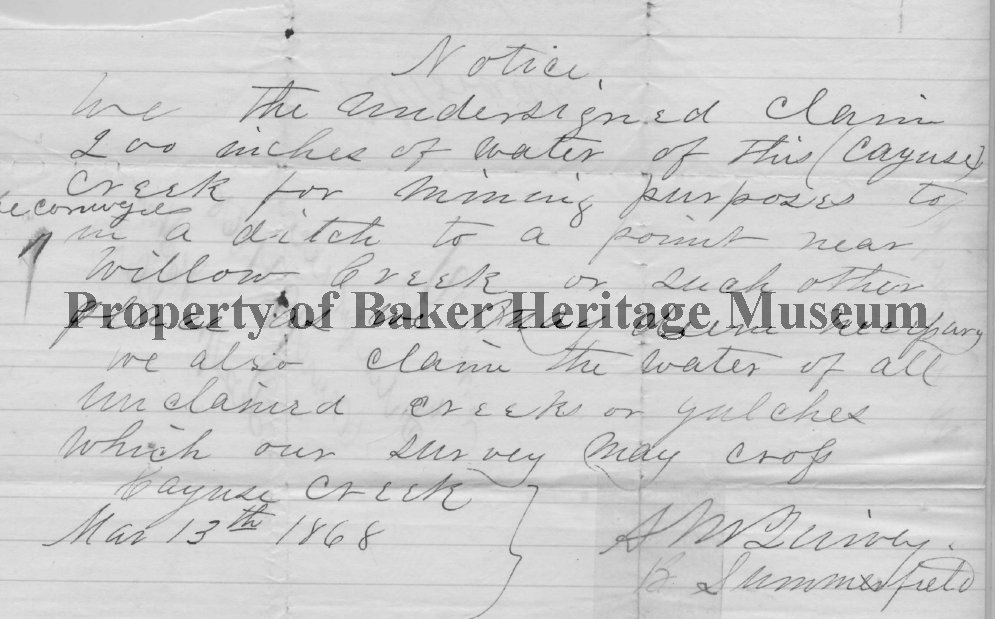 Notice.
We the undersigned claim
200 inches of water of this (Cayuse)
Creek for mining purposes to
be conveyed
in a ditch to a point near
Willow Creek or such other
place as we may deem necessary
Property of Baker Heritage Museum
we also claim the water of all
unclaimed creeks or gulches
which our survey may cross
Cayuse Creek
Mar 13th 1868
B. Summerfield